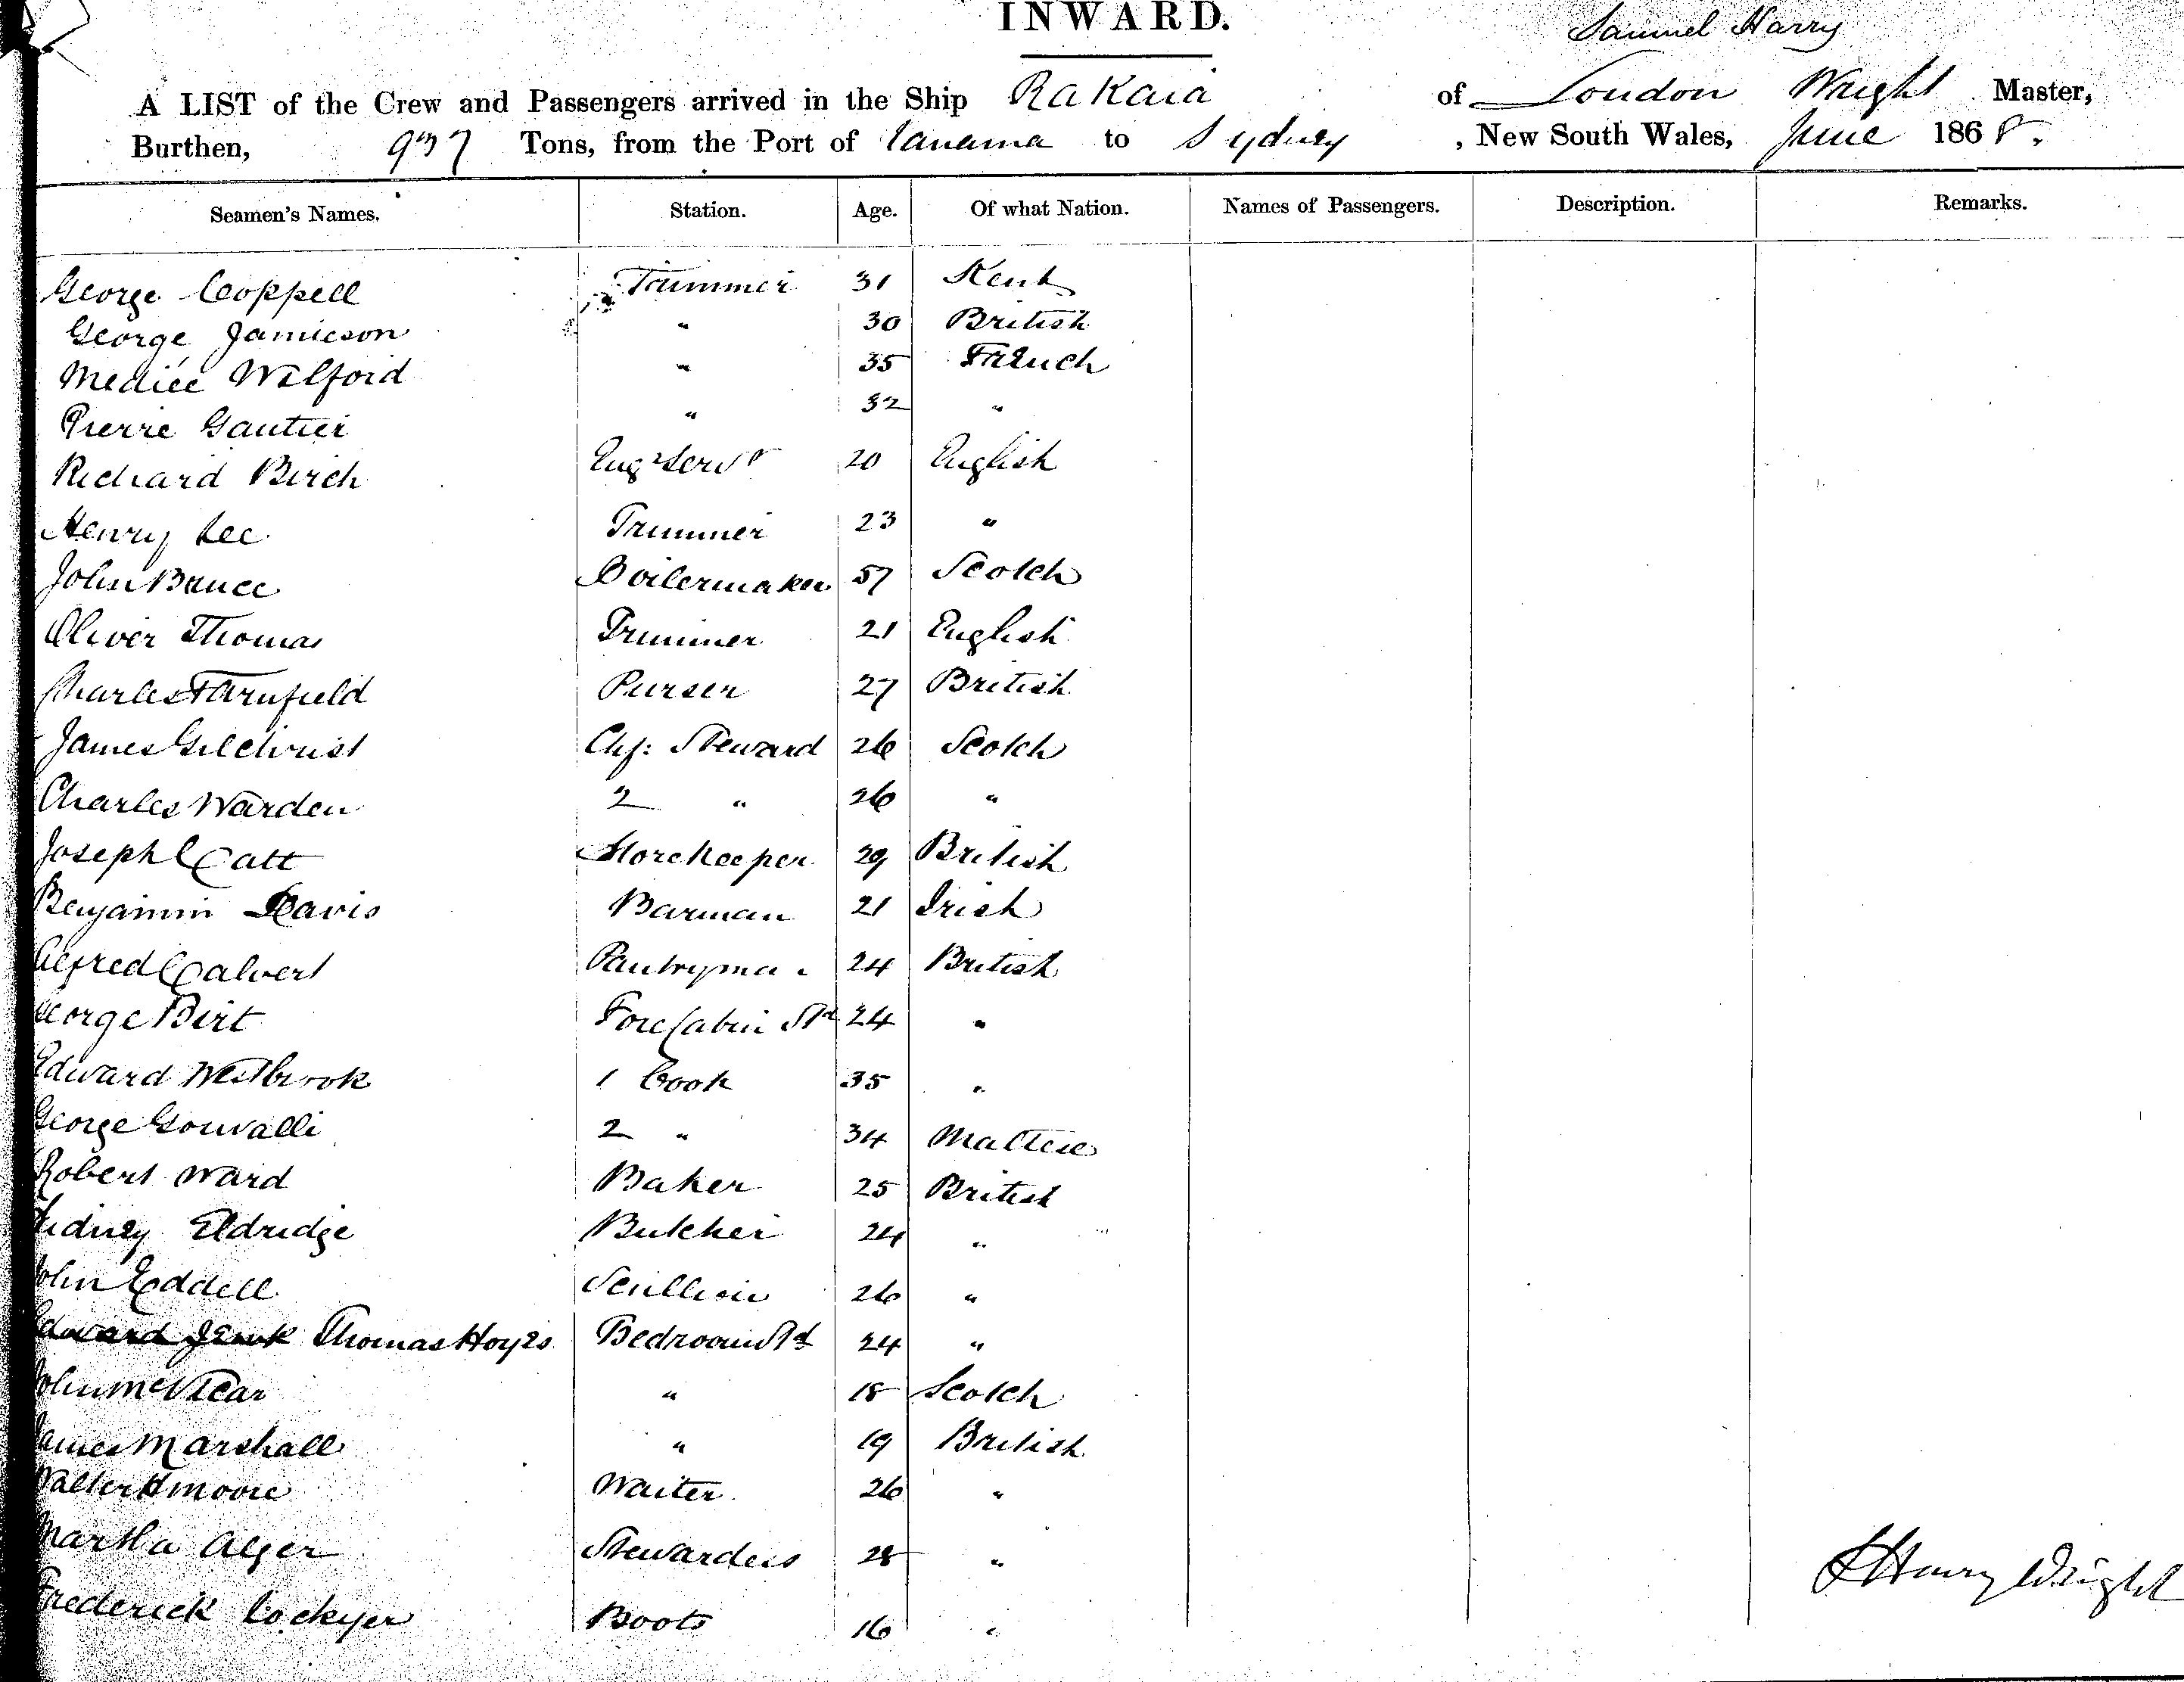 INWARD.
Samuel Harry
A LIST of the Crew and Passengers arrived in the Ship Rakaia of London Wright Master,
Burthen, 937 Tons, from the Port of Panama to Sydney , New South Wales, June 1868.
Seamen's Names. Station. Age. Of what Nation. Names of Passengers. Description. Remarks.
George Coppell Trimmer 31 Kent
George Jamieson " 30 British
Welford " 35 French
Pierre Gautier " 32 "
Richard Birch Engr Servt 20 English
Henry Lee Trimmer 23 "
John Bruce Boilermaker 57 Scotch
Oliver Thomas Trimmer 21 English
Charles Purser 27 British
James Gilchrist Chf: Steward 26 Scotch
Charles Warden 2 " 26 "
Joseph Catt Storekeeper 29 British
Benjamin Davis Barman 21 Irish
Alfred Calvert Pantryman 24 British
George Birt Fore Cabin Std 24 "
Edward Westbrook 1 Cook 35 "
George 2 " 34 Maltese
Robert Ward Baker 25 British
Sidney Eldridge Butcher 24 "
John Eddell Scullion 26 "
Thomas Hoyes Bedroom Std 24 "
John McVicar " 18 Scotch
James Marshall " 19 British
Walter H Moore Waiter 26 "
Martha Alger Stewardess 28 "
Frederick Lockyer Boots 16 "
S Harry Wright